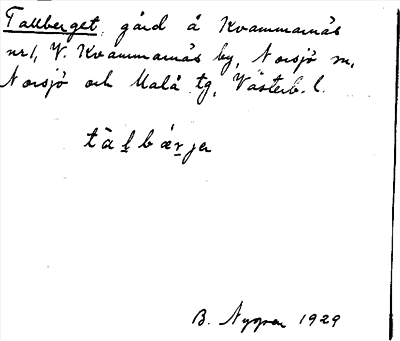 Tallberget, gård å Kvammarnäs
nr 1, V. Kvammarnäs by, Norsjö sn,
Norsjö och Malå tg, Västerb. l.
B. Nygren 1929